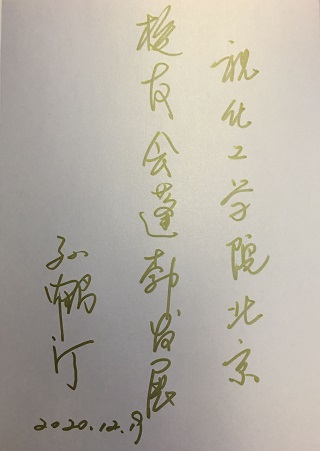 祝化工学院北京
校友会蓬勃发展
孙鹏汀
2020.12.19